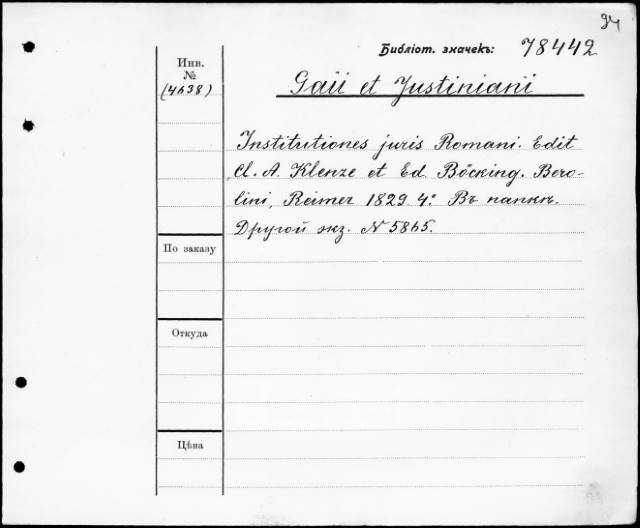 24
Библіот. значекъ: 78442
Инв.
№
(4638)
Gaii et Justiniani
Institutiones juris Romani. Edit
Cl. A. Klenze et Ed Böcking. Bero-
lini, Reimer 1829. 4º. Въ папкѣ.
Другой экз. N 5865.
По заказу
Откуда
Цѣна